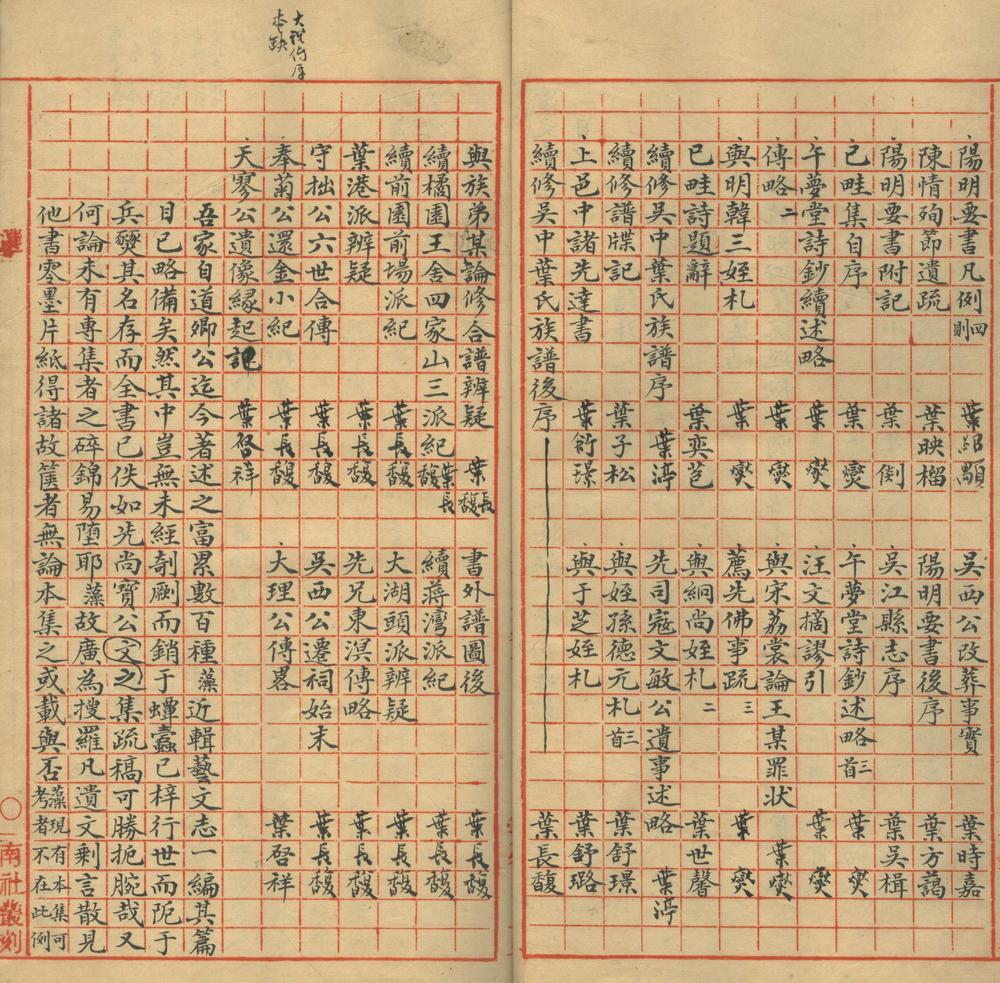 陽明要書凡例四則 葉紹顒 吳西公改葬事實 葉時嘉
陳情殉節遺疏 葉映榴 陽明要書後序 葉方藹
陽明要書附記 葉 吳江縣志序 葉吳楫
已畦集自序 葉燮 午夢堂詩鈔述略三首 葉燮
午夢堂詩鈔續述略 葉燮 汪文摘謬引 葉燮
傳略二 葉燮 與宋荔裳論王某罪狀 葉燮
與明韓三姪札 葉燮 薦先佛事疏三 葉燮
已畦詩題辭 葉奕苞 與絅尚姪札二 葉世馨
續修吳中葉氏族譜序 葉渟 先司寇文敏公遺事述略 葉渟
續修譜牒記 葉子松 與姪孫德元札三首 葉舒璟
上邑中諸先達書 葉衍璟 與于芝姪札 葉舒璐
續修吳中葉氏族譜後序 葉長馥
與族弟某論修合譜辨疑 葉長馥 書外譜圖後 葉長馥
續橘園王舍四家山三派紀 葉長馥 續蔣灣派紀 葉長馥
續前園前場派紀 葉長馥 大湖頭派辨疑 葉長馥
葉港派辨疑 葉長馥 先兄東溟傳略 葉長馥
守拙公六世合傳 葉長馥 吳西公遷祠始末 葉長馥
奉菊公還金小紀 葉長馥 大理公傳畧 葉啓祥
天寥公遺像緣起記 葉啓祥
吾家自道卿公迄今著述之富累數百種藻近輯藝文志一編其篇
目已略備矣然其中豈無未經剞劂而銷于蟫蠹已梓行世而阨于
兵燹其名存而全書已佚如先尚寶公文之集疏稿可勝扼腕哉又
何論未有專集者之碎錦易墮耶藻故廣為搜羅凡遺文剩言散見
他書零墨片紙得諸故篋者無論本集之或載與否藻現有本集可考者不在此例
南社叢刻
本缺